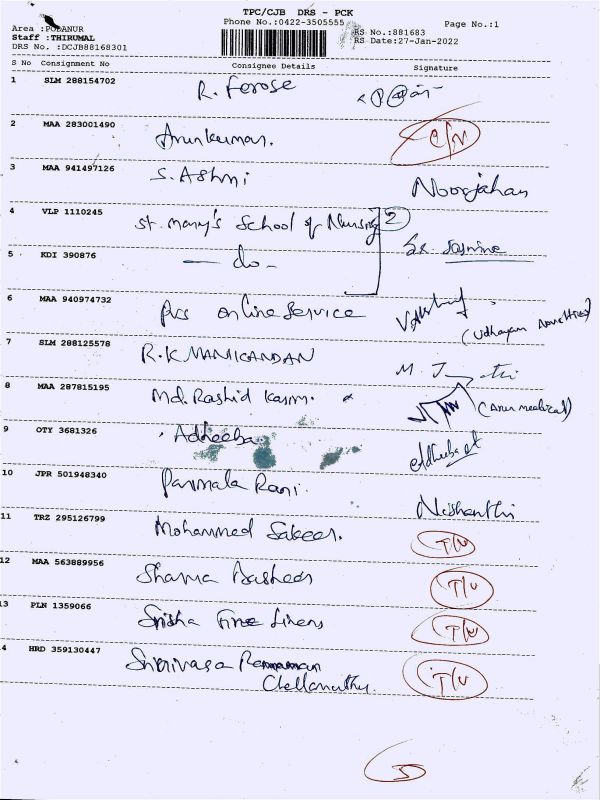 TPC/CJB DRS - PCK
Phone No.:0422-3505555
Page No.:1
Area :PODANUR
Staff :THIRUMAL
DRS No. :DCJB88168301
RS No.:881683
RS Date:27-Jan-2022
S No Consignment No Consignee Details Signature
1 SLM 288154702 R. Ferose
2 MAA 283001490 Arunkumar.
3 MAA 941497126 S. Ashni Noorjahan
4 VLP 1110245 St. Mary's School of Nursing 2
5 KDI 390876 — do — Sr. Jasmine
6 MAA 940974732 online service (Udhayam Novelties)
7 SLM 288125578 R.K MANICANDAN
8 MAA 287815195 Md. Rashid Kasim. (Arun medical)
9 OTY 3681326 Adheeba
10 JPR 501948340 Parimala Rani. Nishanthi
11 TRZ 295126799 Mohammed Sakeer. T/U
12 MAA 563889956 Basheer T/U
13 PLN 1359066 Srisha Fine Linens T/U
14 HRD 359130447 Srinivasa T/U
Chellamuthu.
5